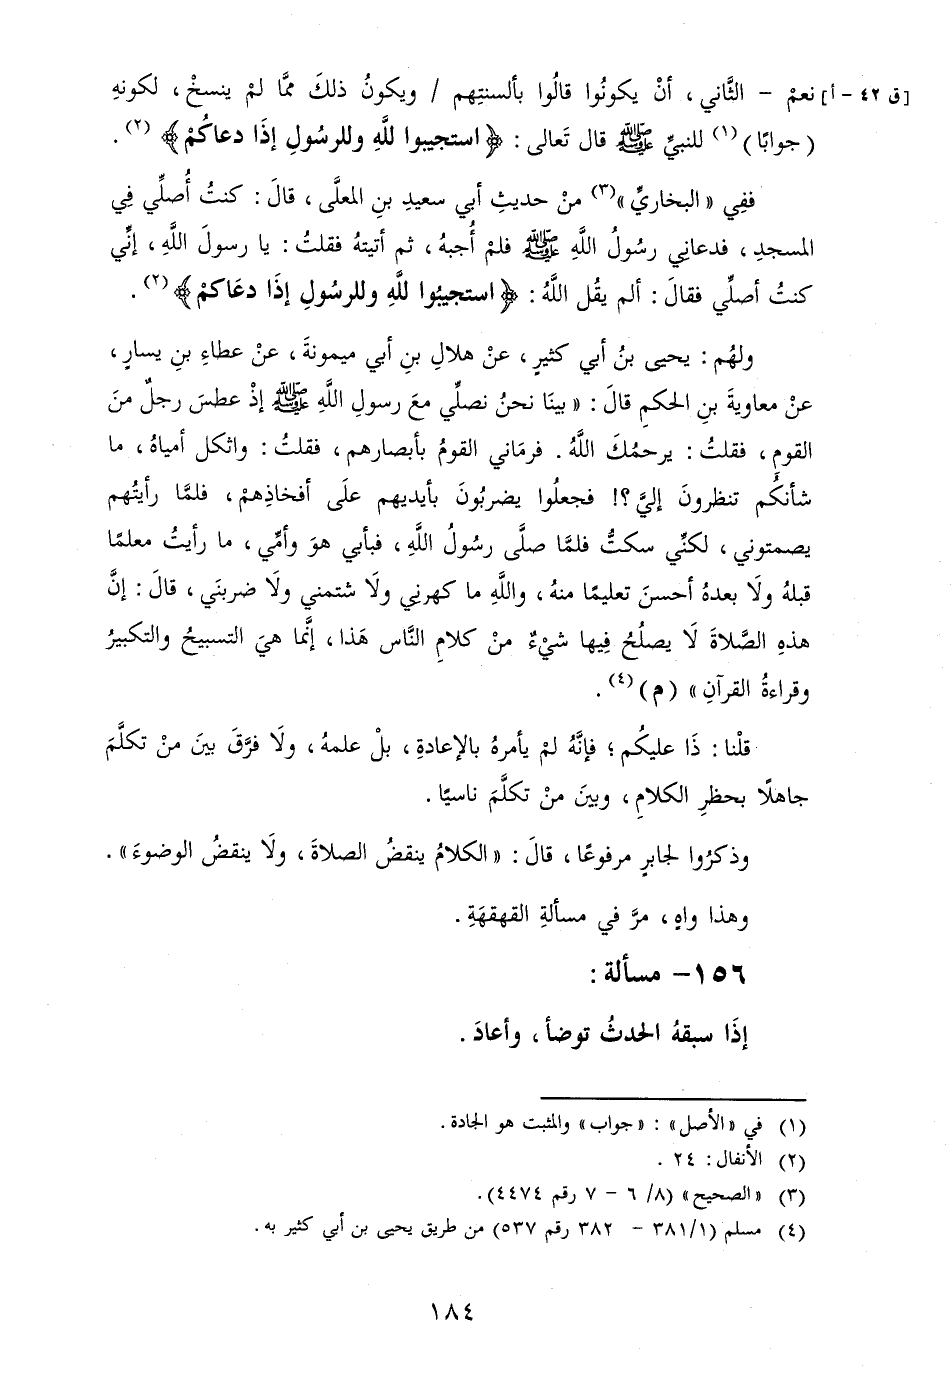 [ق ٤٢ - أ] نعمْ - الثَّاني، أنْ يكونُوا قالُوا بألسنتِهم / ويكونُ ذلكَ ممَّا لمْ ينسخْ، لكونهِ
(جوابًا)(١) للنبيِّ ﷺ قال تَعالى: ﴿استجيبوا للَّهِ وللرسُولِ إذَا دعاكُمْ﴾(٢).
ففِي «البخاريِّ»(٣) منْ حديثِ أبي سعيدِ بنِ المعلَّى، قالَ: كنتُ أُصلِّي فِي
المسجدِ، فدعاني رسُولُ اللَّهِ ﷺ فلمْ أُجبهُ، ثم أتيتهُ فقلتُ: يا رسولَ اللَّهِ، إنِّي
كنتُ أصلِّي فقالَ: ألم يقُلِ اللَّهُ: ﴿استجيبُوا للَّهِ وللرسُولِ إذَا دعَاكمْ﴾(٢).
ولهُم: يحيى بنُ أبي كثيرٍ، عنْ هلالِ بنِ أبي ميمونةَ، عنْ عطاءِ بنِ يسارٍ،
عنْ معاويةَ بنِ الحكمِ قالَ: «بينَا نحنُ نصلِّي معَ رسولِ اللَّهِ ﷺ إذْ عطسَ رجلٌ منَ
القومِ، فقلتُ: يرحمُكَ اللَّهُ. فرمَاني القومُ بأبصارهم، فقلتُ: واثكل أمياهُ، ما
شأنكُم تنظرونَ إليَّ؟! فجعلُوا يضربُونَ بأيديهم علَى أفخاذِهمْ، فلمَّا رأيتُهم
يصمتوني، لكنِّي سكتُّ فلمَّا صلَّى رسُولُ اللَّهِ، فبأبي هوَ وأمِّي، ما رأيتُ معلمًا
قبلهُ ولَا بعدهُ أحسنَ تعليمًا منهُ، واللَّهِ ما كهرنِي ولَا شتمني ولَا ضربنَي، قالَ: إنَّ
هذهِ الصَّلاةَ لَا يصلُحُ فِيها شيْءٌ منْ كلامِ النَّاس هَذا، إنَّما هيَ التسبيحُ والتكبيرُ
وقراءةُ القرآنِ» (م)(٤).
قلْنا: ذَا عليكُم؛ فإنَّهُ لمْ يأمرهُ بالإعادةِ، بلْ علمهُ، ولَا فرَّقَ بينَ منْ تكلَّمَ
جاهلًا بحظرِ الكلامِ، وبينَ منْ تكلَّمَ ناسيًا.
وذكرُوا لجابرٍ مرفوعًا، قالَ: «الكلامُ ينقضُ الصلاةَ، ولَا ينقضُ الوضوءَ».
وهذا واهٍ، مرَّ في مسألةِ القهقهَةِ.
١٥٦- مسألة:
إذَا سبقهُ الحدثُ توضأ، وأعادَ.
(١) في «الأصل»: «جواب» والمثبت هو الجادة.
(٢) الأنفال: ٢٤.
(٣) «الصحيح» (٨/ ٦ - ٧ رقم ٤٤٧٤).
(٤) مسلم (٣٨١/١ - ٣٨٢ رقم ٥٣٧) من طريق يحيى بن أبي كثير به.
١٨٤